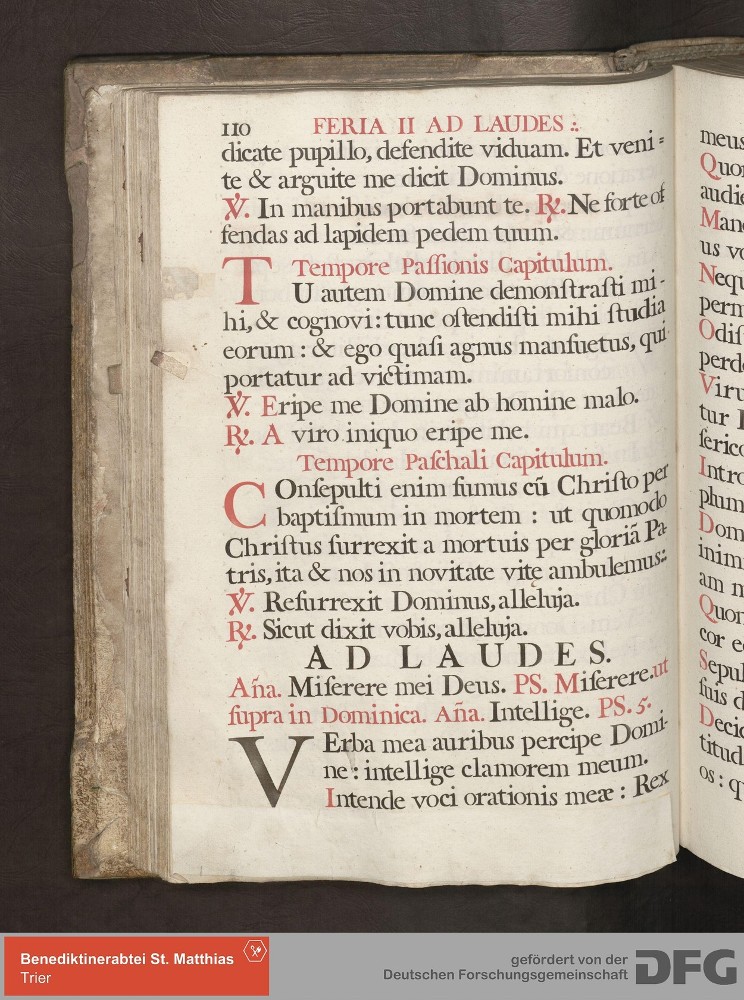 110 FERIA II AD LAUDES ∴
dicate pupillo, defendite viduam. Et veni=
te & arguite me dicit Dominus.
℣. In manibus portabunt te. ℟. Ne forte of
fendas ad lapidem pedem tuum.
Tempore Paſſionis Capitulum.
TU autem Domine demonſtraſti mi-
hi, & cognovi: tunc oſtendiſti mihi ſtudia
eorum : & ego quaſi agnus manſuetus, qui
portatur ad victimam.
℣. Eripe me Domine ab homine malo.
℟. A viro iniquo eripe me.
Tempore Paſchali Capitulum.
COnſepulti enim ſumus cū Chriſto per
baptiſmum in mortem : ut quomodo
Chriſtus ſurrexit a mortuis per gloriā Pa-
tris, ita & nos in novitate vitę ambulemus:.
℣. Reſurrexit Dominus, alleluja.
℟. Sicut dixit vobis, alleluja.
AD LAUDES.
Aña. Miſerere mei Deus. PS. Miſerere. ut
ſupra in Dominica. Aña. Intellige. PS. 5.
VErba mea auribus percipe Domi-
ne : intellige clamorem meum.
Intende voci orationis meæ : Rex
meus
Quo
audie
Man
us vo
Nequ
perm
Odiſ
perd
Viru
tur
ſeric
Intro
plum
Dom
inim
am
Quon
cor e
Sepul
ſuis d
Decid
titud
os : q
Benediktinerabtei St. Matthias
Trier
gefördert von der
Deutschen Forschungsgemeinschaft
DFG